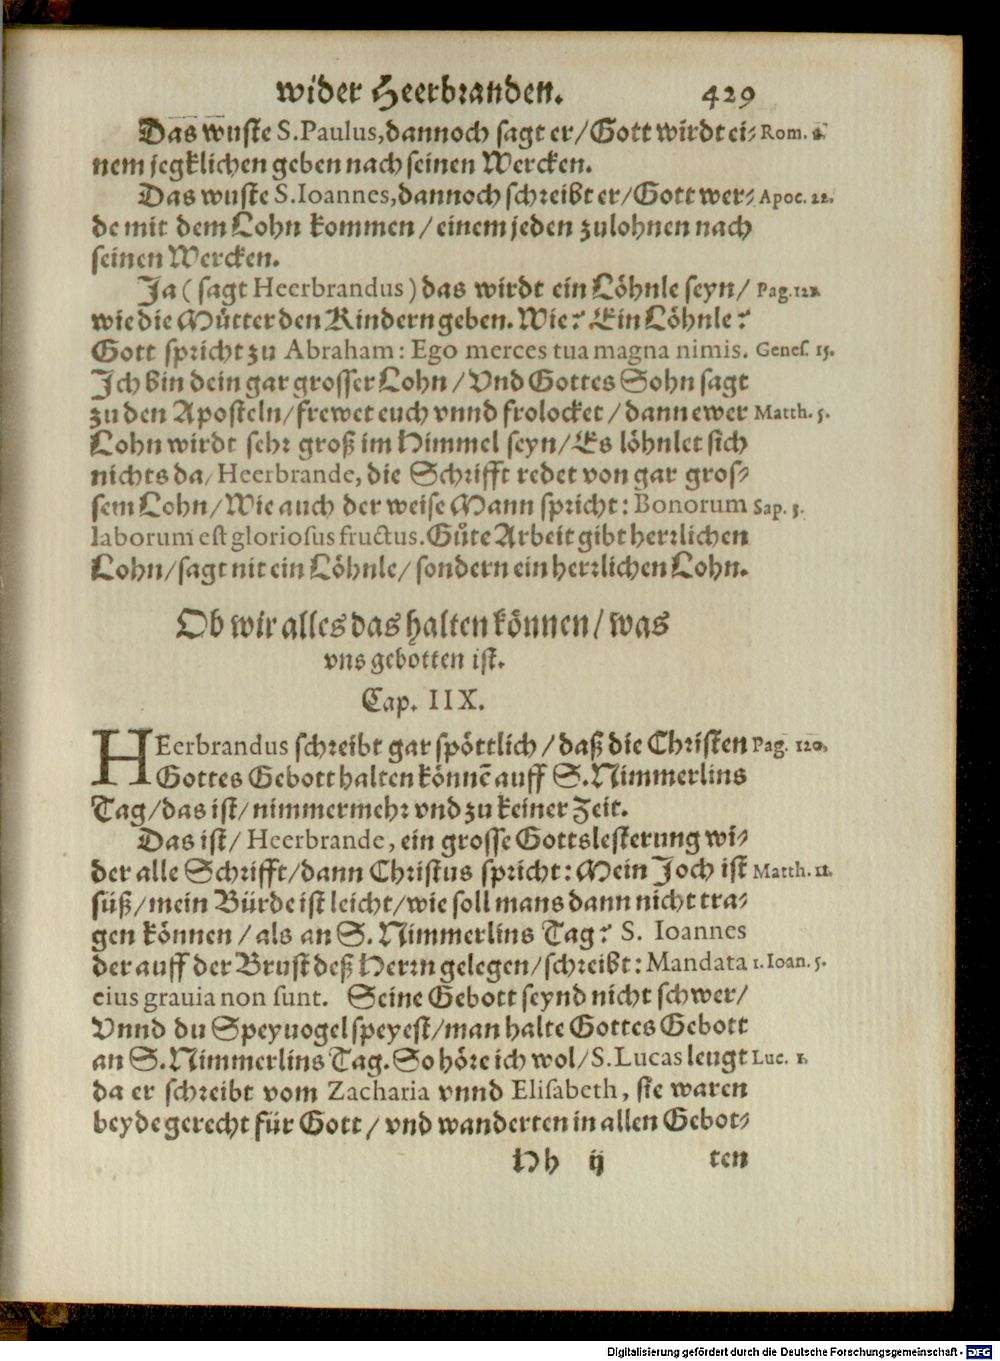 wider Heerbranden. 429
Das wuste S. Paulus, dannoch sagt er/ Gott wirdt ei- Rom. 2.
nem jegklichen geben nach seinen Wercken.
Das wuste S. Ioannes, dannoch schreibt er/ Gott wer- Apoc. 22.
de mit dem Lohn kommen / einem jeden zulohnen nach
seinen Wercken.
Ja ( sagt Heerbrandus ) das wirdt ein Löhnle seyn/ Pag. 121.
wie die Můtter den Kindern geben. Wie? Ein Löhnle?
Gott spricht zu Abraham: Ego merces tua magna nimis. Genes. 15.
Ich bin dein gar grosser Lohn / Vnd Gottes Sohn sagt
zu den Aposteln/ frewet euch vnnd frolocket / dann ewer Matth. 5.
Lohn wirdt sehr groß im Himmel seyn/ Es löhnlet sich
nichts da/ Heerbrande, die Schrifft redet von gar gros-
sem Lohn/ Wie auch der weise Mann spricht: Bonorum Sap. 3.
laborum est gloriosus fructus. Gůte Arbeit gibt herrlichen
Lohn/ sagt nit ein Löhnle/ sondern ein herrlichen Lohn.
Ob wir alles das halten können/ was
vns gebotten ist.
Cap. IIX.
HEerbrandus schreibt gar spöttlich/ daß die Christen Pag. 120.
Gottes Gebott halten könnē auff S. Nimmerlins
Tag/ das ist/ nimmermehr vnd zu keiner Zeit.
Das ist/ Heerbrande, ein grosse Gottslesterung wi-
der alle Schrifft/ dann Christus spricht: Mein Joch ist Matth. 11.
süß/ mein Bürde ist leicht/ wie soll mans dann nicht tra-
gen können / als an S. Nimmerlins Tag? S. Ioannes
der auff der Brust deß Herrn gelegen/ schreibt: Mandata 1. Ioan. 5.
eius grauia non sunt. Seine Gebott seynd nicht schwer/
Vnnd du Speyuogel speyest/ man halte Gottes Gebott
an S. Nimmerlins Tag. So höre ich wol/ S. Lucas leugt Luc. 1.
da er schreibt vom Zacharia vnnd Elisabeth, sie waren
beyde gerecht für Gott / vnd wanderten in allen Gebot-
Hh ij ten
Digitalisierung gefördert durch die Deutsche Forschungsgemeinschaft - DFG